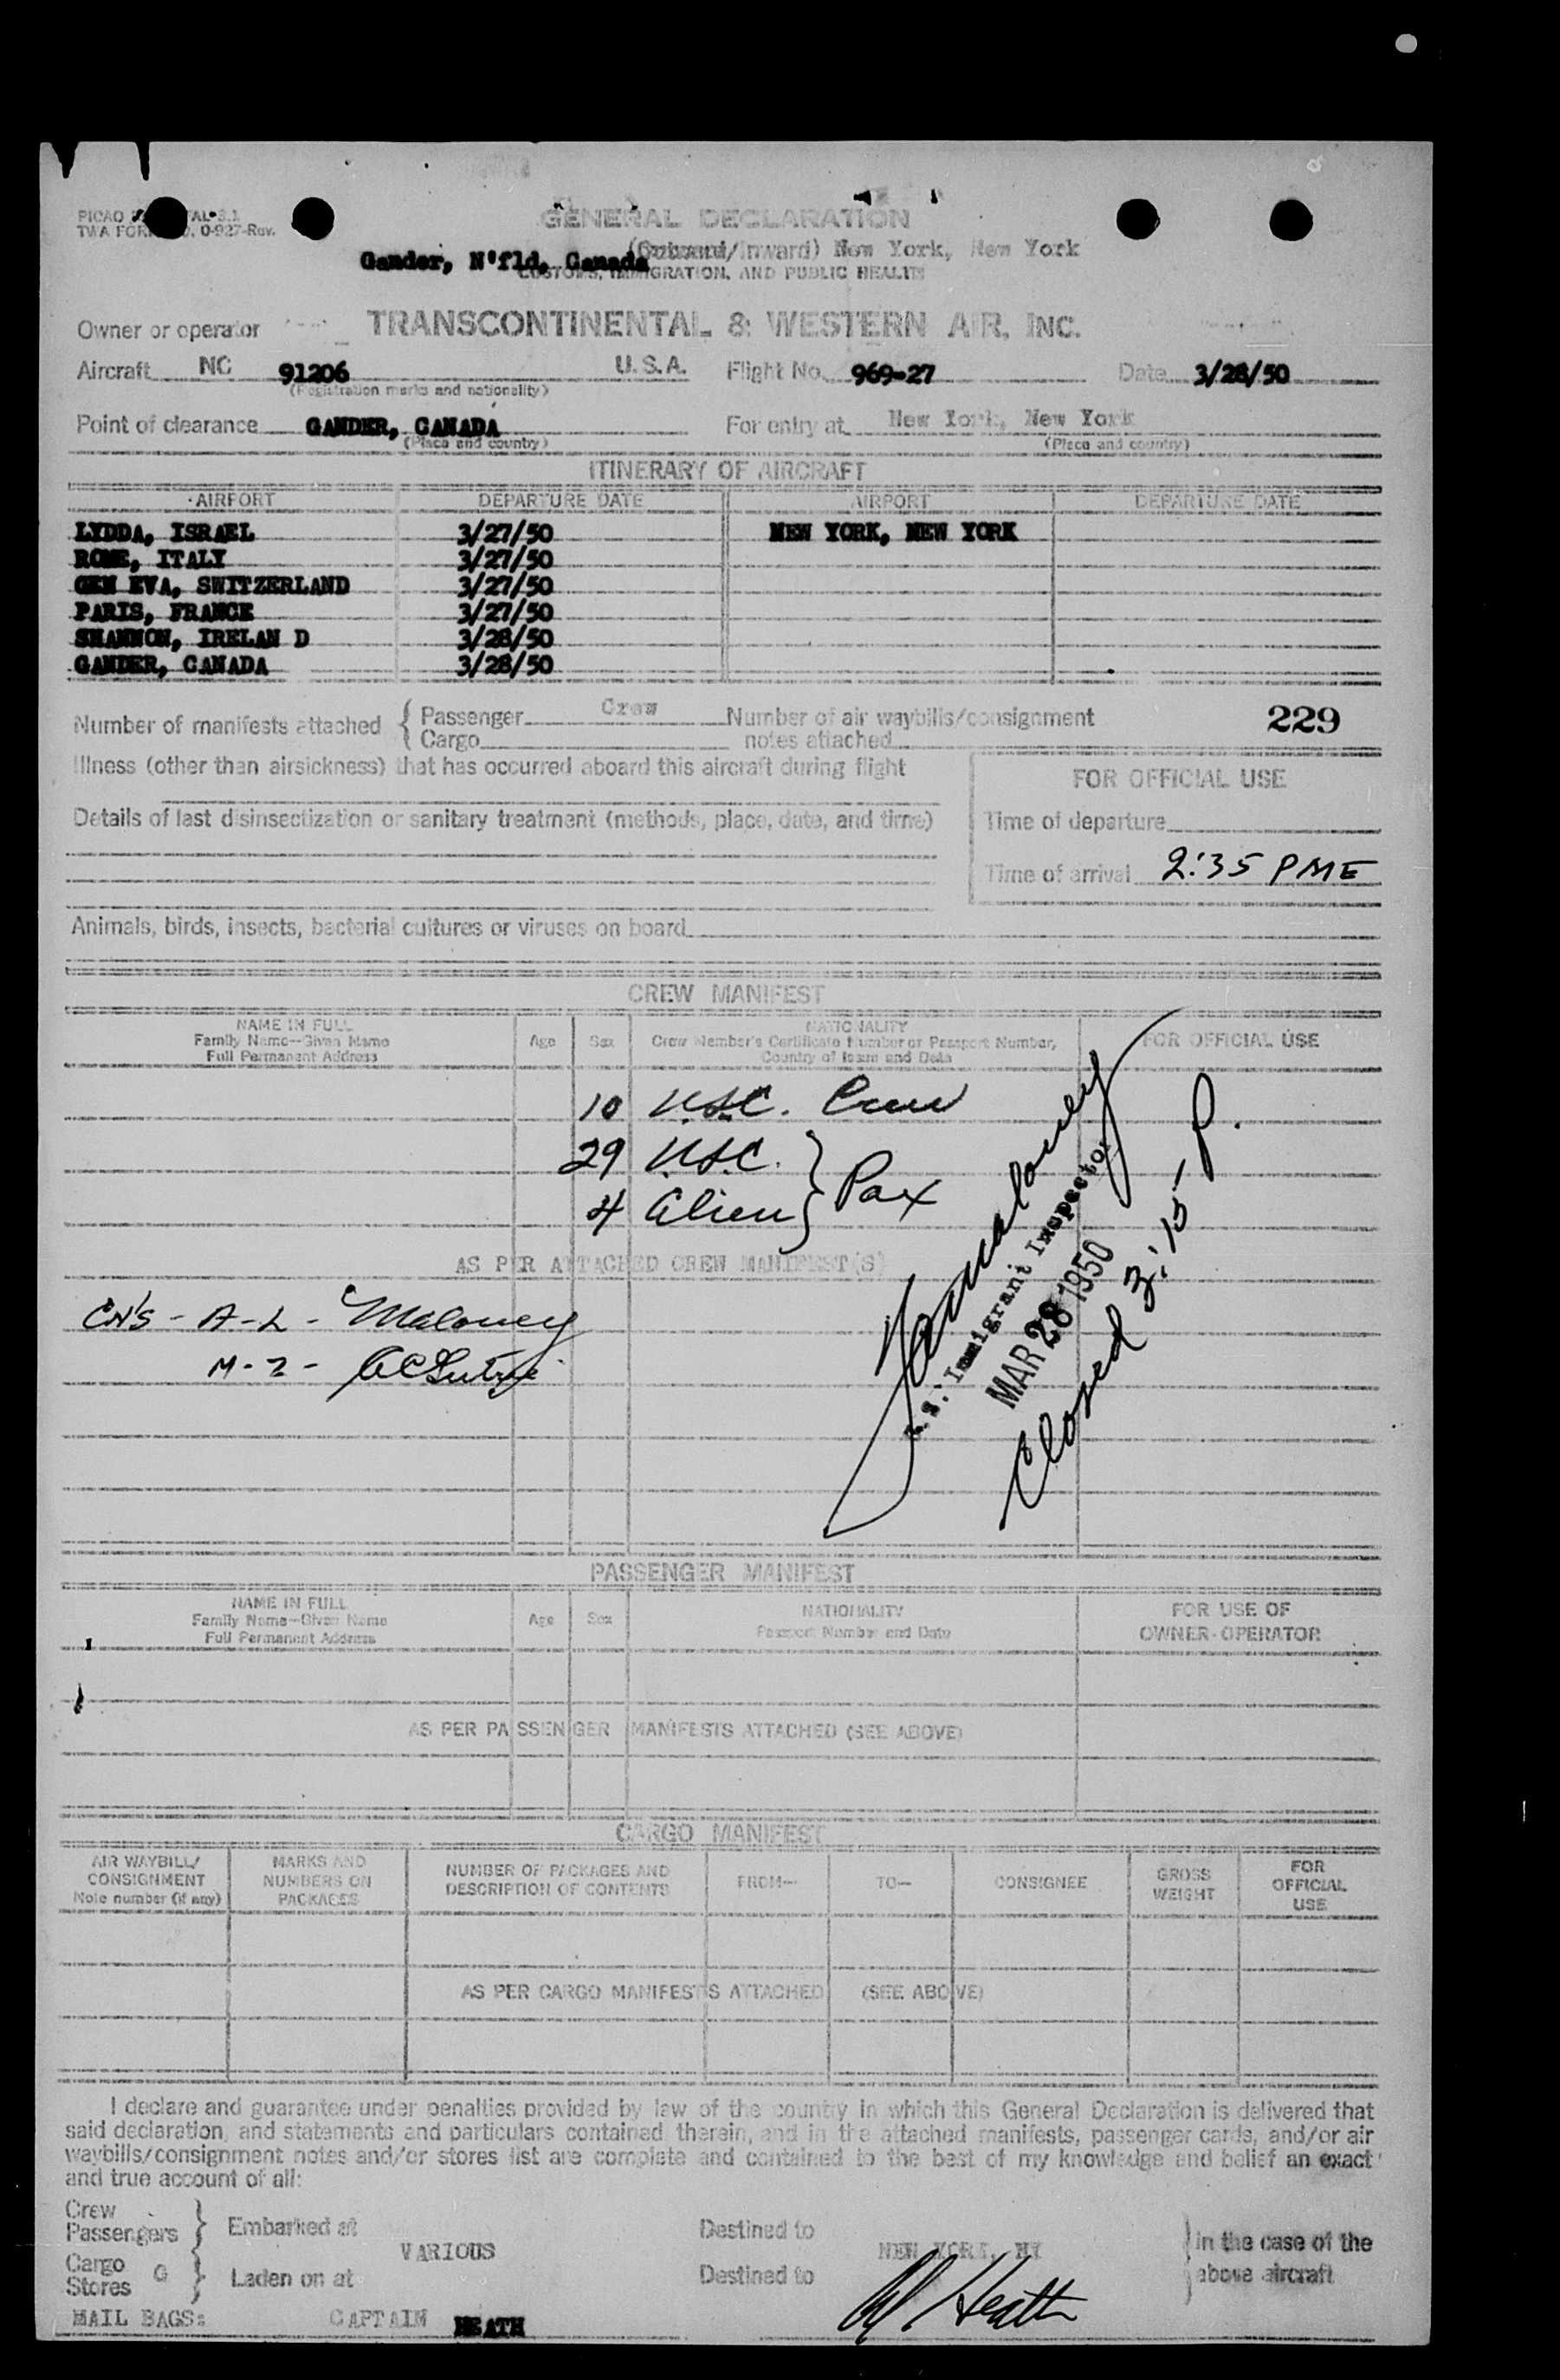 GENERAL DECLARATION
TWA FORM 0-927-Rev.
(Outward/Inward) New York, New York
Gander, N'fld, Canada
CUSTOMS, IMMIGRATION, AND PUBLIC HEALTH
Owner or operator TRANSCONTINENTAL & WESTERN AIR, INC.
Aircraft NC 91206 U.S.A. Flight No. 969-27 Date 3/28/50
(Registration marks and nationality)
Point of clearance GANDER, CANADA For entry at New York, New York
(Place and country) (Place and country)
ITINERARY OF AIRCRAFT
AIRPORT DEPARTURE DATE AIRPORT DEPARTURE DATE
LYDDA, ISRAEL 3/27/50 NEW YORK, NEW YORK
ROME, ITALY 3/27/50
GEN EVA, SWITZERLAND 3/27/50
PARIS, FRANCE 3/27/50
SHANNON, IRELAN D 3/28/50
GANDER, CANADA 3/28/50
Number of manifests attached { Passenger Crew Number of air waybills/consignment 229
Cargo notes attached
Illness (other than airsickness) that has occurred aboard this aircraft during flight
FOR OFFICIAL USE
Details of last disinsectization or sanitary treatment (methods, place, date, and time)
Time of departure
Time of arrival 2:35 PME
Animals, birds, insects, bacterial cultures or viruses on board
CREW MANIFEST
NAME IN FULL NATIONALITY
Family Name—Given Name Age Sex Crew Member's Certificate Number or Passport Number, FOR OFFICIAL USE
Full Permanent Address Country of Issue and Date
10 USC. Crew
29 USC. } Pax
4 Alien
AS PER ATTACHED CREW MANIFEST(S)
U.S. Immigrant Inspector
MAR 28 1950
Closed 3:15 P.
A-L - Maloney
M-Z -
PASSENGER MANIFEST
NAME IN FULL NATIONALITY FOR USE OF
Family Name—Given Name Age Sex Passport Number and Date OWNER-OPERATOR
Full Permanent Address
AS PER PASSENGER MANIFESTS ATTACHED (SEE ABOVE)
CARGO MANIFEST
AIR WAYBILL/ MARKS AND NUMBER OF PACKAGES AND FROM— TO— CONSIGNEE GROSS FOR
CONSIGNMENT NUMBERS ON DESCRIPTION OF CONTENTS WEIGHT OFFICIAL
Note number (if any) PACKAGES USE
AS PER CARGO MANIFESTS ATTACHED (SEE ABOVE)
I declare and guarantee under penalties provided by law of the country in which this General Declaration is delivered that
said declaration, and statements and particulars contained therein, and in the attached manifests, passenger cards, and/or air
waybills/consignment notes and/or stores list are complete and contained to the best of my knowledge and belief an exact
and true account of all:
Crew
Passengers } Embarked at Destined to } in the case of the
VARIOUS NEW YORK, NY
Cargo G
Stores } Laden on at Destined to above aircraft
MAIL BAGS: CAPTAIN HEATH Heath